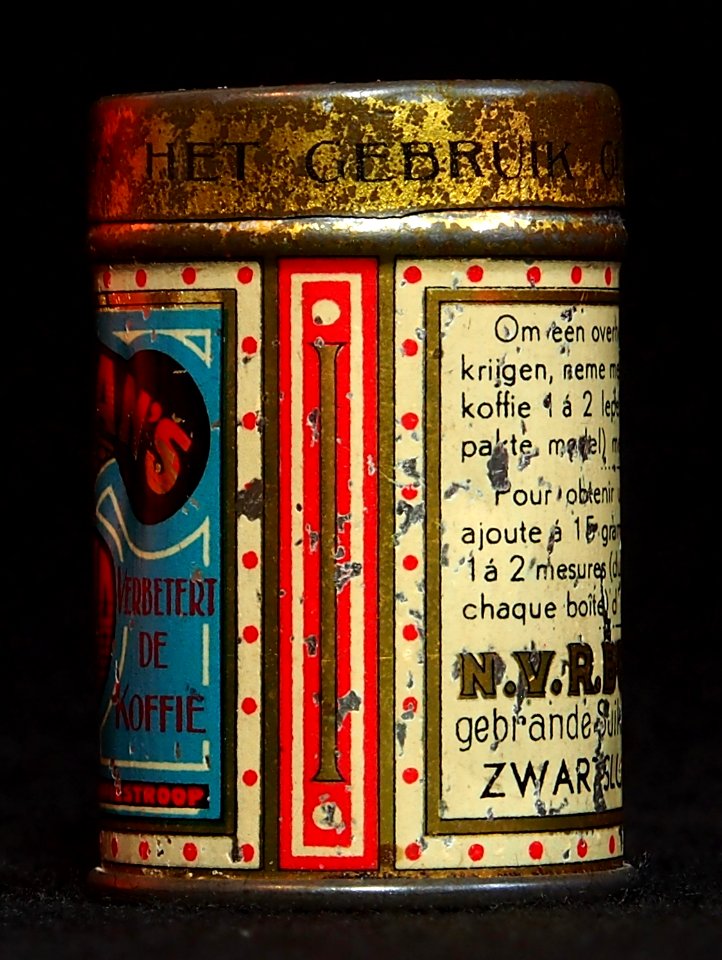 HET GEBRUIK
VERBETERT
DE
KOFFIE
STROOP
Om een over
krijgen, neme me
koffie 1 á 2 lepe
pakte model) m
Pour obtenir
ajoute á 15 gram
1 á 2 mesures (du
chaque boîte) d'
N.V.R.B
gebrande Suik
ZWARTSLU